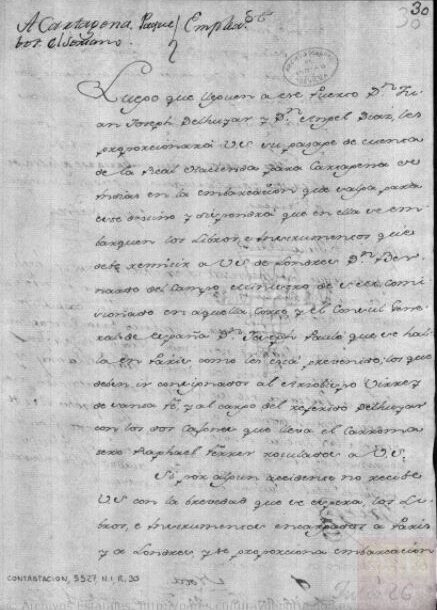 30
A Cartagena Paque/ Emplea.
bot. el Soriano.
Luego que lleguen a ese Puerto Dn. Ju
an Joseph Delhuyar y Dn. Angel Diaz, les
proporcionará VS su pasage de cuenta
de la Real Hacienda para Cartagena de
Indias en la embarcacion que salga para
ese destino y dispondrá que en ella se em
barquen los Libros, e Instrumentos que
debe remitir a VS de Londres Dn. Ber
nardo del Campo, Ministro de S.M.
cionado en aquella Corte, y el Consul Gene
ral de España Dn. Joseph que se ha
lla en Paris como les está prevenido; los que
deben ir consignados al Arzobispo Virrey
de Santa Fé, y al cargo del referido Delhuyar
con los dos Cajones que lleva el Carroma
tero Raphael Ferrer rotulados a VS.
Si por algun accidente no recibe
VS con la brevedad que se espera, los Li
bros, e Instrumentos encargados a Paris
y a Londres, y se proporciona embarcacion
CONTRATACION, 5527, N.1, R.30